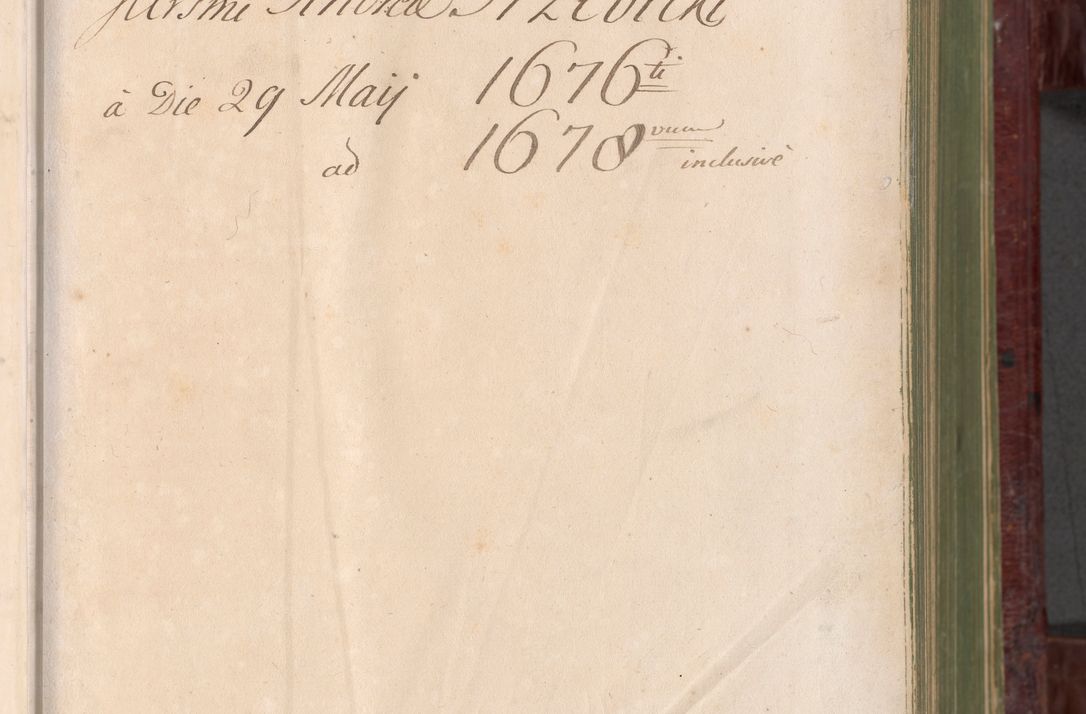 Andreæ Trzebicki
à Die 29 Maij 1676ti
ad 1678vum inclusivè